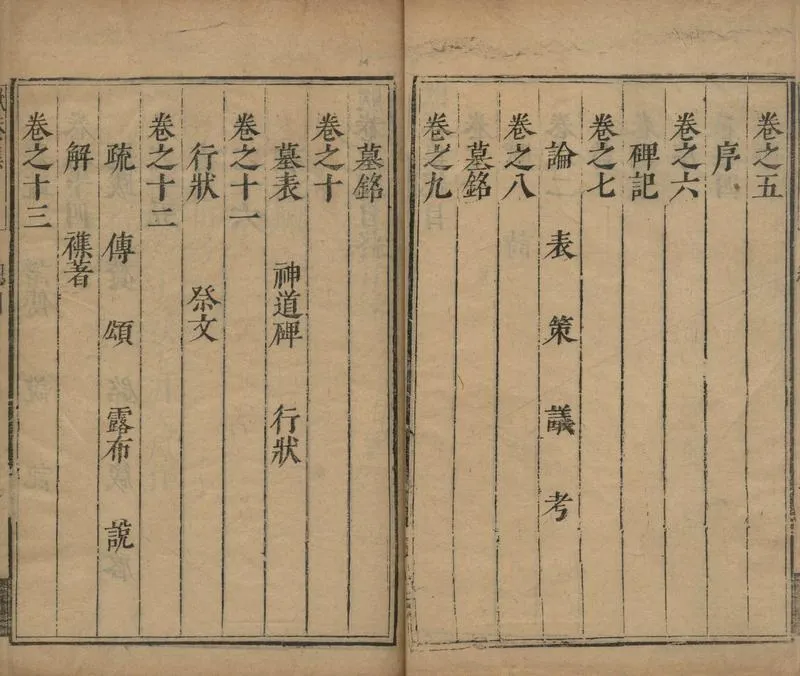 卷之五
序
卷之六
碑記
卷之七
論 表 策 議 考
卷之八
墓銘
卷之九
墓銘
卷之十
墓表 神道碑 行狀
卷之十一
行狀 祭文
卷之十二
疏 傳 頌 露布 說
解 襍著
卷之十三